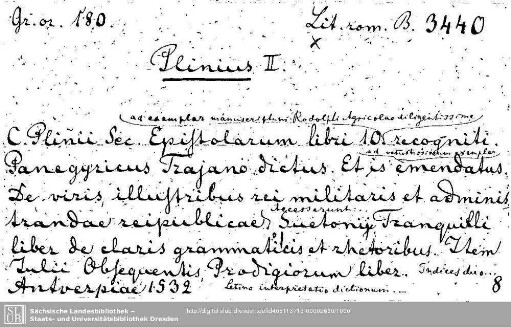 Gr. or. 180.
Lit. rom. B. 3440
x
Plinius II.
ad exemplar manuscriptum Rodolphi Agricolae diligentissime
C. Plinii Sec. Epistolarum libri 10. recogniti
ad vetustissimum exemplar
Panegyricus Trajano dictus. Et is emendatus.
De viris illustribus rei militaris et adminis
Accesserunt
trandae reipublicae, Suetonij Tranquilli
liber de claris grammaticis et rhetoribus. Item
Julii Obsequentis Prodigiorum liber. Indices duo...
Antverpiae 1532 Latina interpretatio dictionum... 8
Sächsische Landesbibliothek –
Staats- und Universitätsbibliothek Dresden